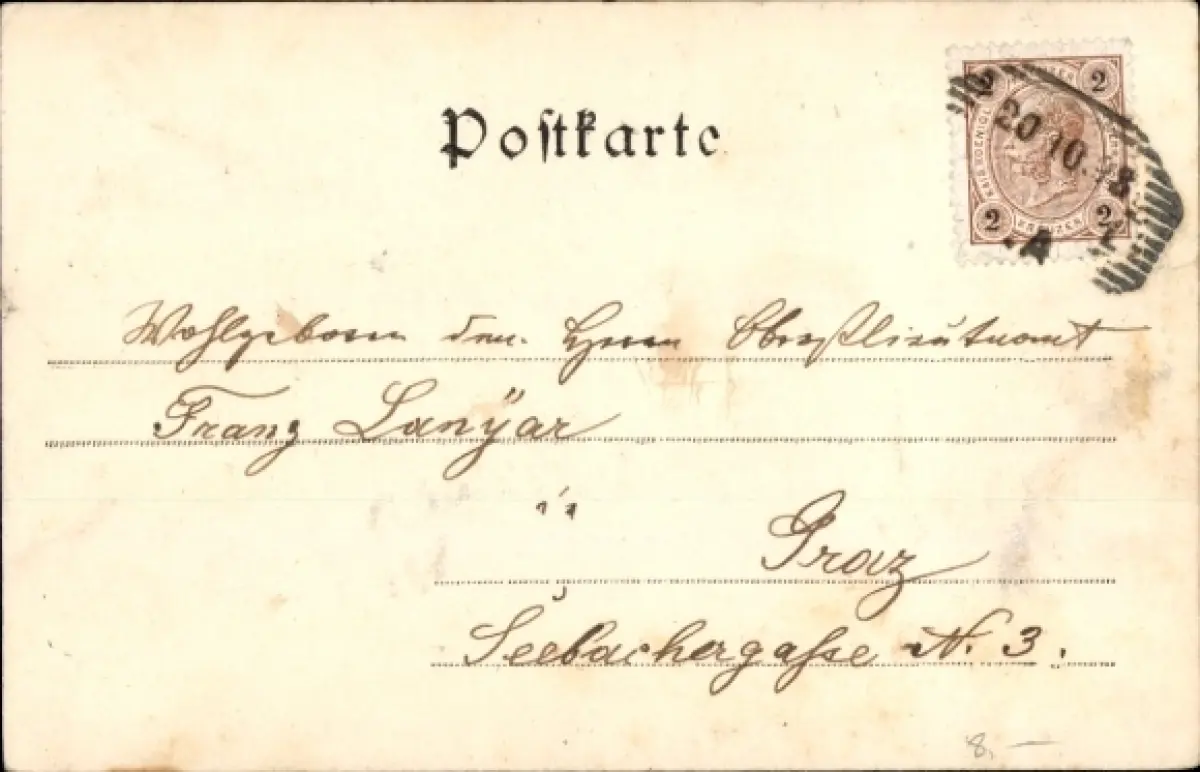 Postkarte
2 KREUZER 2
20 10. 8
2 KREUZER 2
A
Wohlgeboren dem Herrn Oberstlieutnant
Franz Lanÿar
in
Graz
Seebachergasse N. 3.
8,–